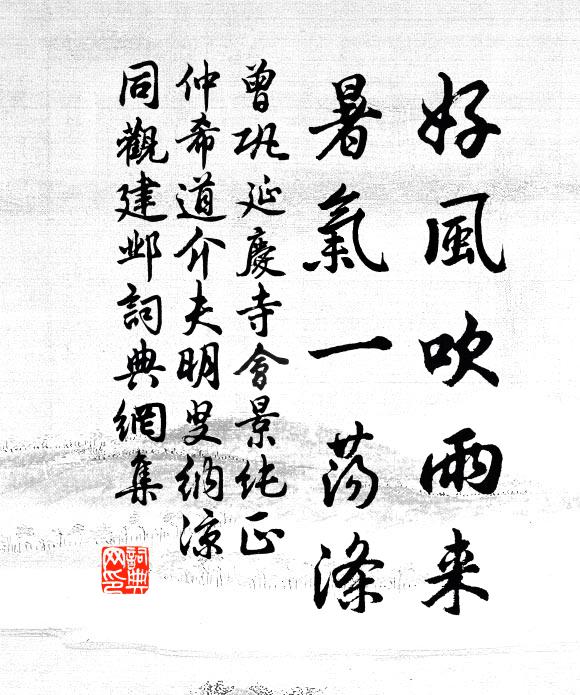 好風吹雨来
暑氣一蕩滌
曾巩延慶寺會景纯正
仲希道介夫明叟纳凉
同觀建邺詞典網集
詞典网印